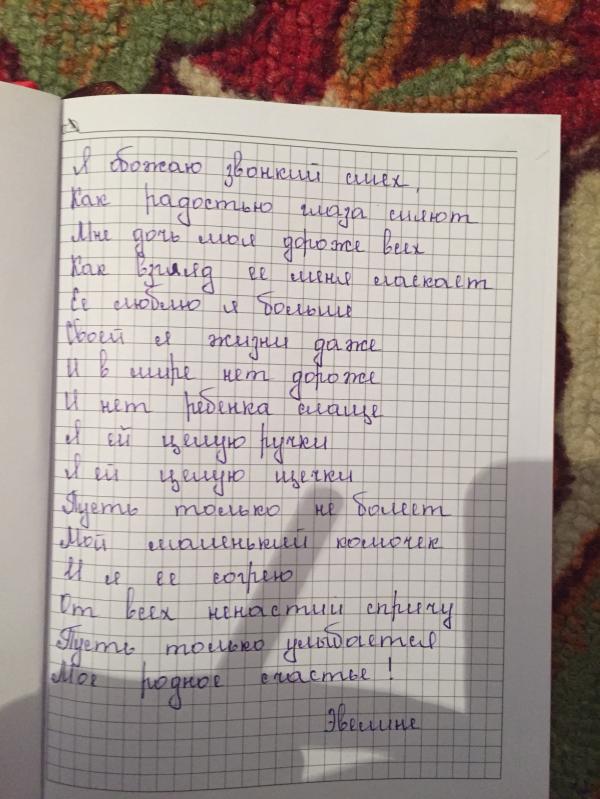 Я обожаю звонкий смех,
Как радостью глаза сияют
Мне дочь моя дороже всех
Как взгляд ее меня ласкает
Ее люблю я больше
Своей я жизни даже
И в мире нет дороже
И нет ребенка слаще
Я ей целую ручки
Я ей целую щечки
Пусть только не болеет
Мой маленький комочек
И я ее согрею
От всех ненастий спрячу
Пусть только улыбается
Мое родное счастье!
Эвелине